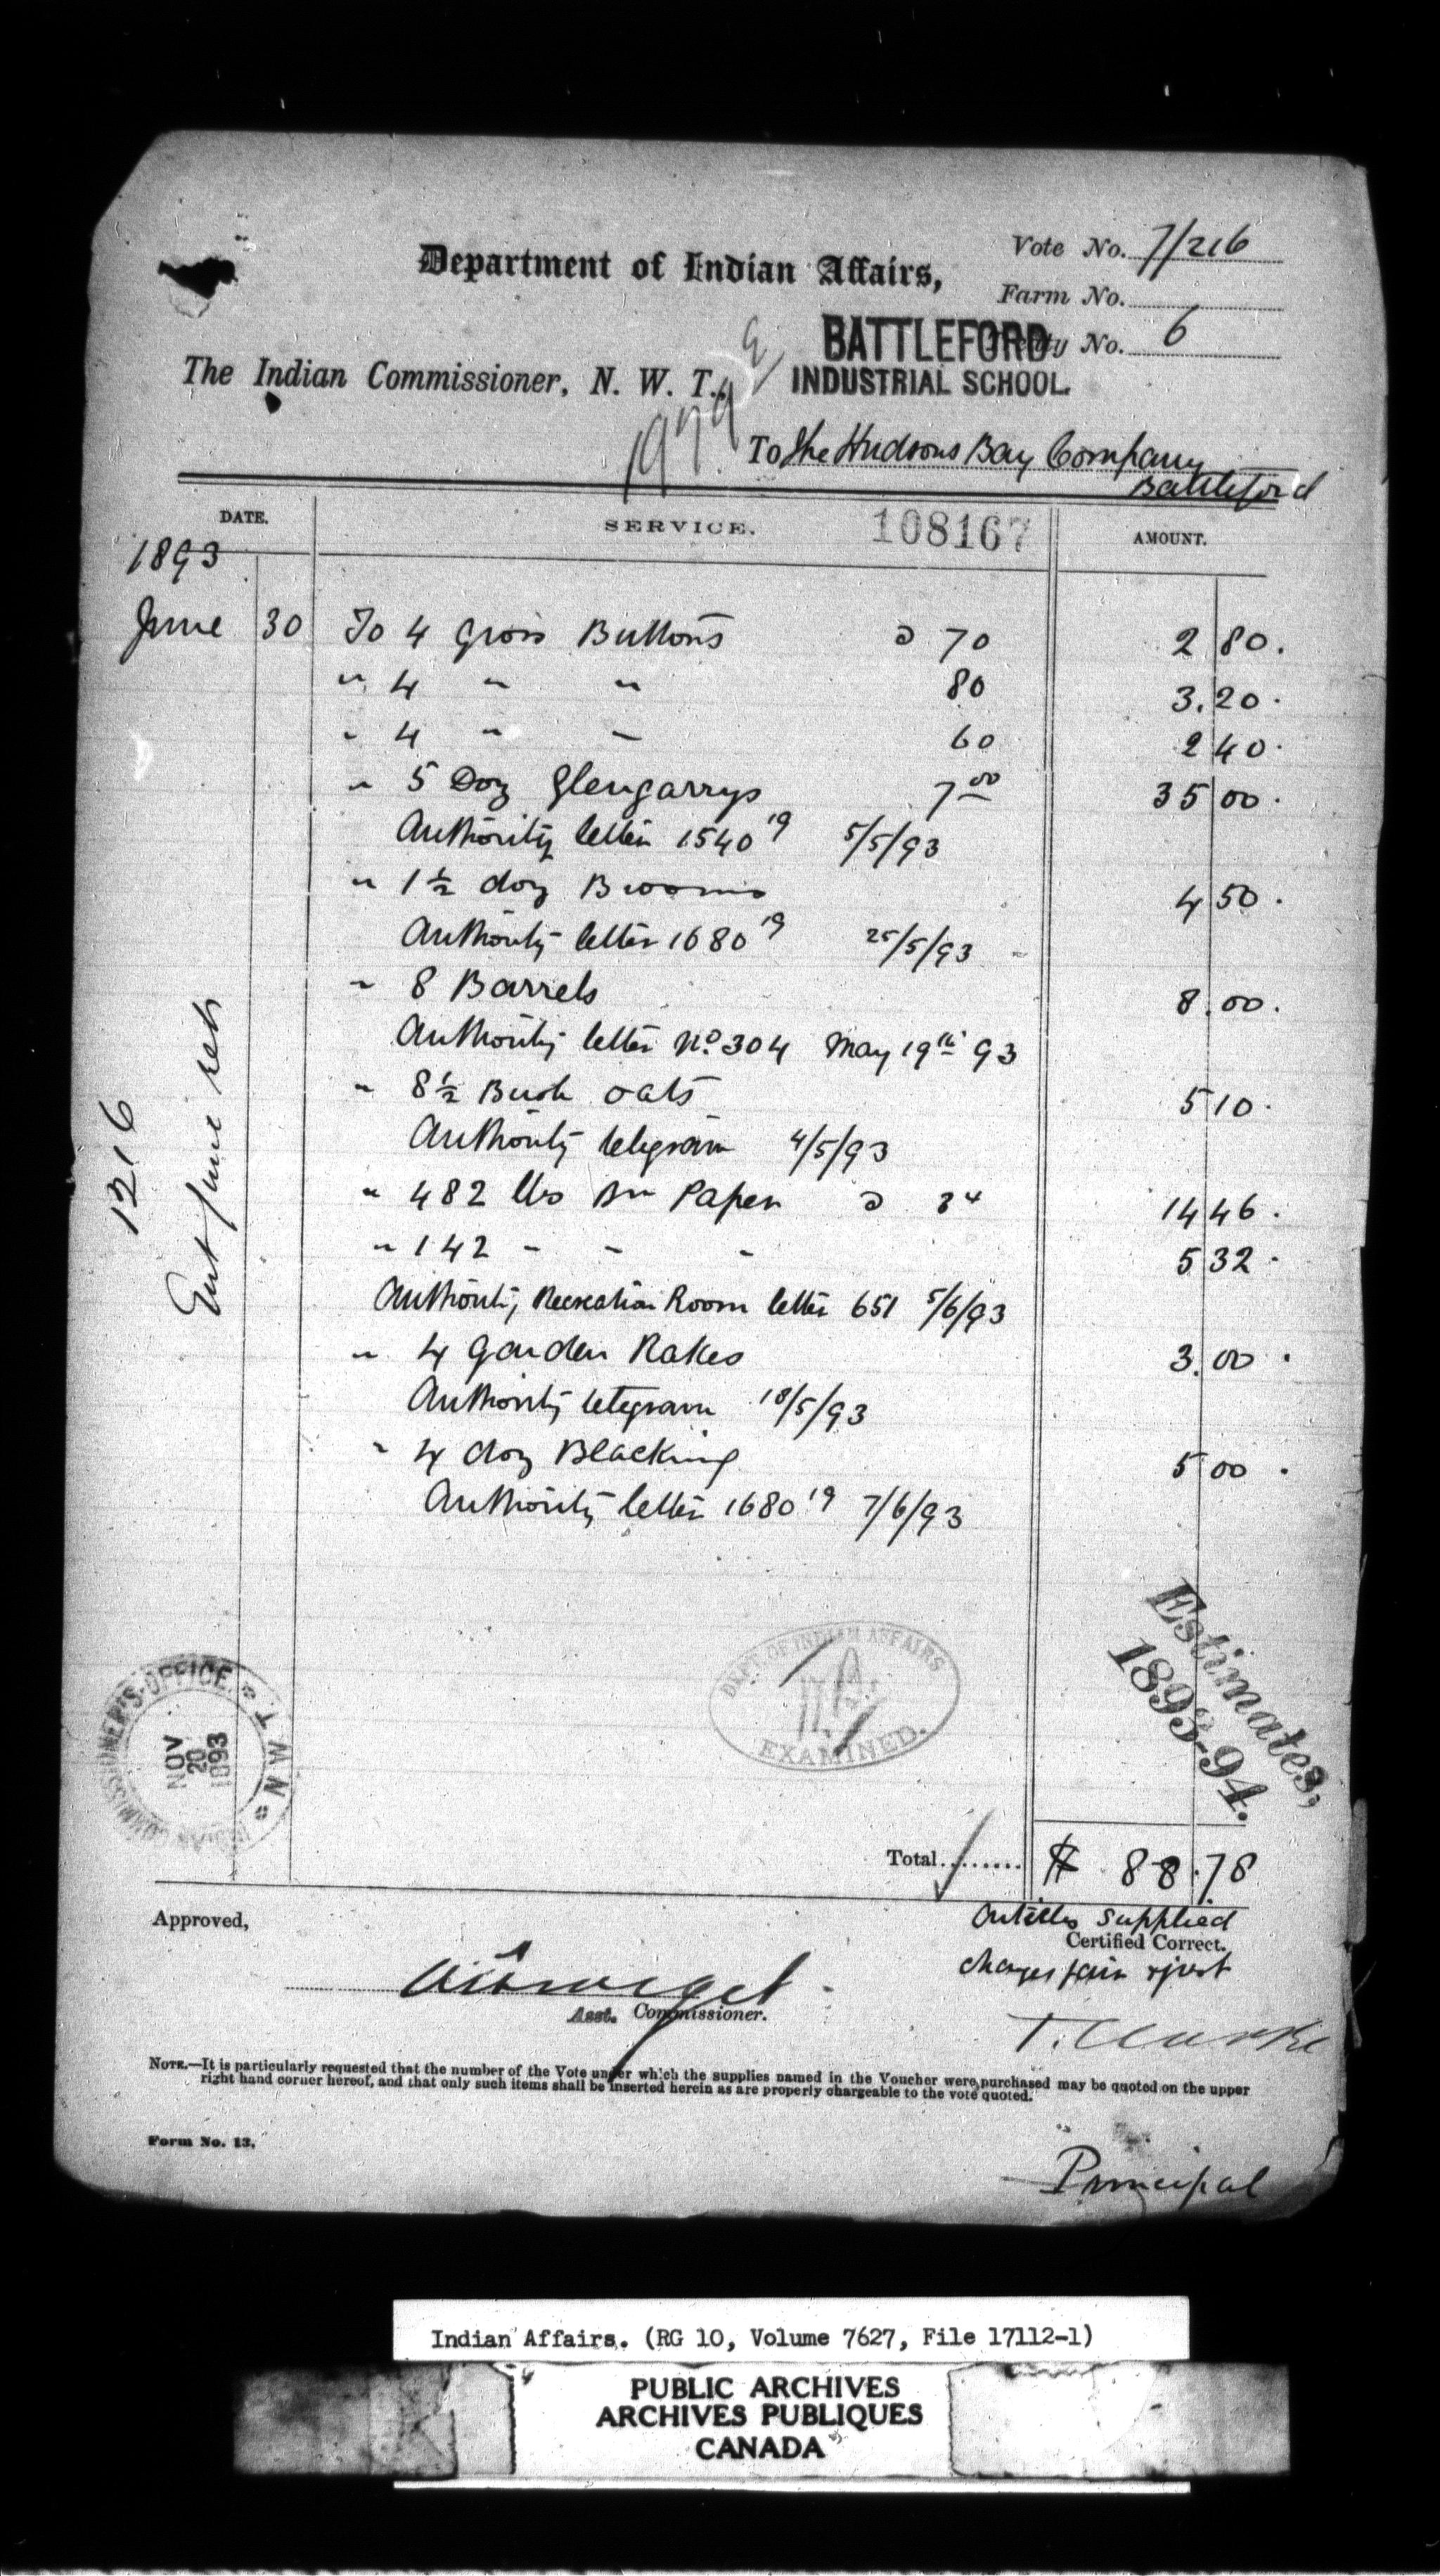 Vote No. 7/216
Department of Indian Affairs,
Farm No.
BATTLEFORD
Treaty No. 6
The Indian Commissioner, N. W. T.,
INDUSTRIAL SCHOOL.
1979
To The Hudsons Bay Company
Battleford
DATE. SERVICE. 108167 AMOUNT.
1893
June 30 To 4 Gross Buttons @ 70 2 80.
" 4 " " 80 3.20.
" 4 " " 60 2 40.
" 5 Doz Glengarrys 7 00 35 00.
Authority letter 1540 19 5/5/93
" 1½ doz Brooms 4 50.
Authority letter 1680 19 25/5/93
" 8 Barrels 8.00.
Authority letter No. 304 May 19th 93
" 8½ Bush oats 5 10.
Authority telegram 4/5/93
" 482 lbs Bn Paper @ 3 14 46.
" 142 " " " 5 32.
Authority Recreation Room letter 651 5/6/93
" 4 Garden Rakes 3.00.
Authority telegram 18/5/93
" 4 doz Blacking 5 00.
Authority letter 1680 19 7/6/93
1216
Ent June ret
Estimates,
1893-94.
DEPT. OF INDIAN AFFAIRS
EXAMINED.
INDIAN COMMISSIONER'S-OFFICE. * N.W.T. *
NOV
20
1893
Total......... $ 88.78
Approved,
Articles supplied
Certified Correct.
charges fair & just
Asst. Commissioner.
T. Clarke
NOTE.—It is particularly requested that the number of the Vote under which the supplies named in the Voucher were purchased may be quoted on the upper
right hand corner hereof, and that only such items shall be inserted herein as are properly chargeable to the vote quoted.
Form No. 13.
Principal
Indian Affairs. (RG 10, Volume 7627, File 17112-1)
PUBLIC ARCHIVES
ARCHIVES PUBLIQUES
CANADA